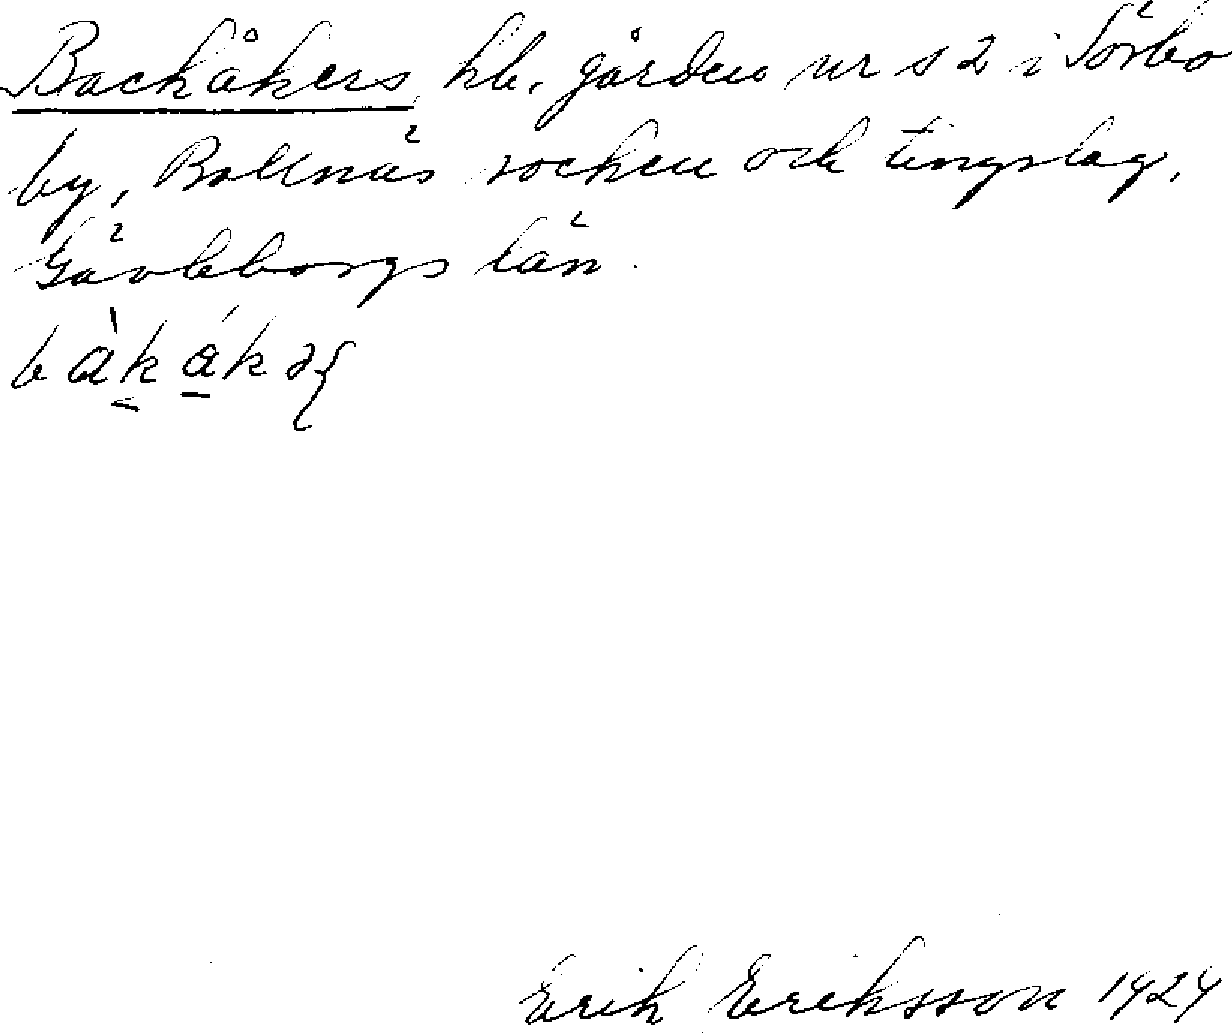 Backåkers, hb. gården nr s 2 i Sörbo
by, Bollnäs socken och tingslag,
Gävleborgs län.
bàkákəʃ
Erik Eriksson 1924